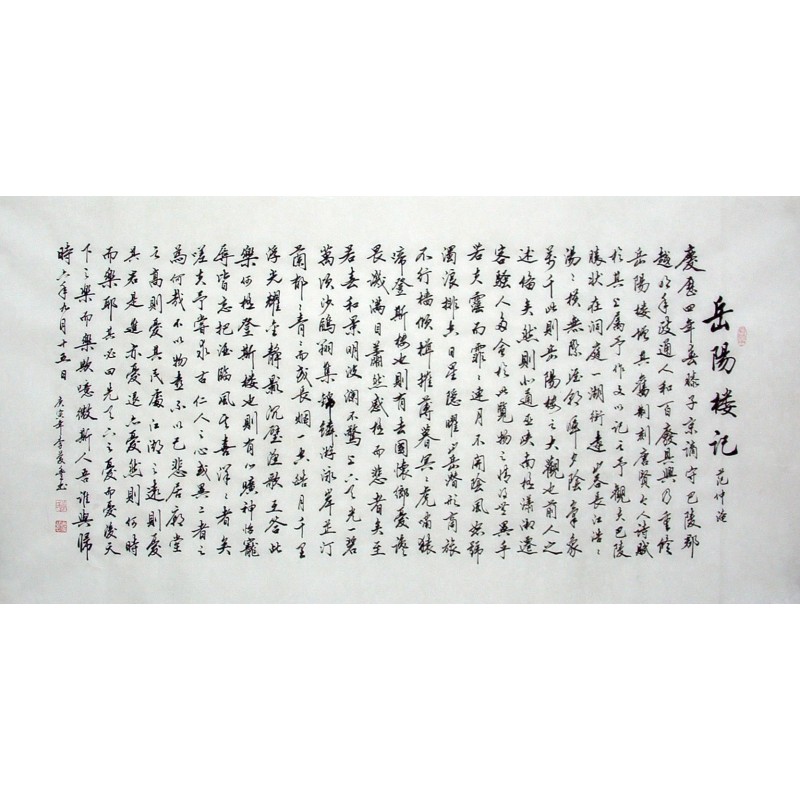 岳陽楼记 范仲淹
慶历四年春滕子京谪守巴陵郡
越明年政通人和百廢具興乃重修
岳陽楼增其舊制刻唐賢今人诗赋
於其上属予作文以记之予觀夫巴陵
勝状在洞庭一湖衔遠山吞長江浩〻
湯〻横無際涯朝暉夕陰氣象
萬千此則岳陽楼之大觀也前人之
述備矣然則北通巫峡南极潇湘遷
客騷人多會於此覽物之情得無異乎
若夫霪雨霏〻連月不開陰風怒號
濁浪排空日星隐曜山岳潜形商旅
不行樯倾楫摧薄暮冥〻虎嘯猿
啼登斯楼也則有去國懷鄉憂谗
畏譏满目蕭然感极而悲者矣至
若春和景明波澜不驚上下天光一碧
萬顷沙鷗翔集锦鳞游泳岸芷汀
蘭郁〻青〻而或長烟一空皓月千里
浮光耀金静影沉璧渔歌互答此
樂何极登斯楼也則有心曠神怡寵
辱皆忘把酒臨風其喜洋〻者矣
嗟夫予嘗求古仁人之心或異二者之
為何哉不以物喜不以己悲居廟堂
之高則憂其民處江湖之遠則憂
其君是進亦憂退亦憂然則何時
而樂耶其必曰先天下之憂而憂後天
下之樂而樂歟噫微斯人吾谁與歸
時六年九月十五日 庚寅年李